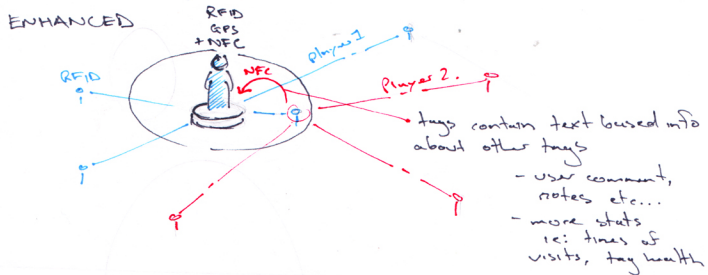 ENHANCED
RFID
GPS
+ NFC
Player 1
RFID
NFC
Player 2.
tags contain text based info
about other tags
- user comment,
notes etc...
- more stats
ie: times of
visits, tag health